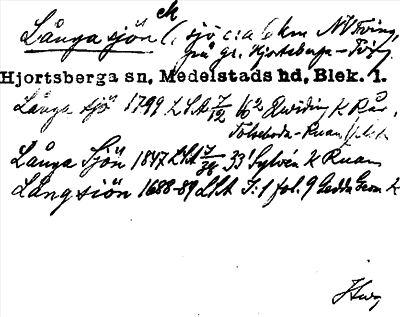 Långa sjön ek (, sjö c:a 6 km NV Tving,
på gr. Hjortsberga-Tving.
Hjortsberga sn, Medelstads hd, Blek. l.
Långa sjö 1799 LSA 7/12 16² K
Tolseboda-Ruan
Långa Sjön 1847 LSA 7/38 33 Sylvén K Ruan
Långsiön 1688-89 LSA I:1 fol. 9 Gedda Geom K